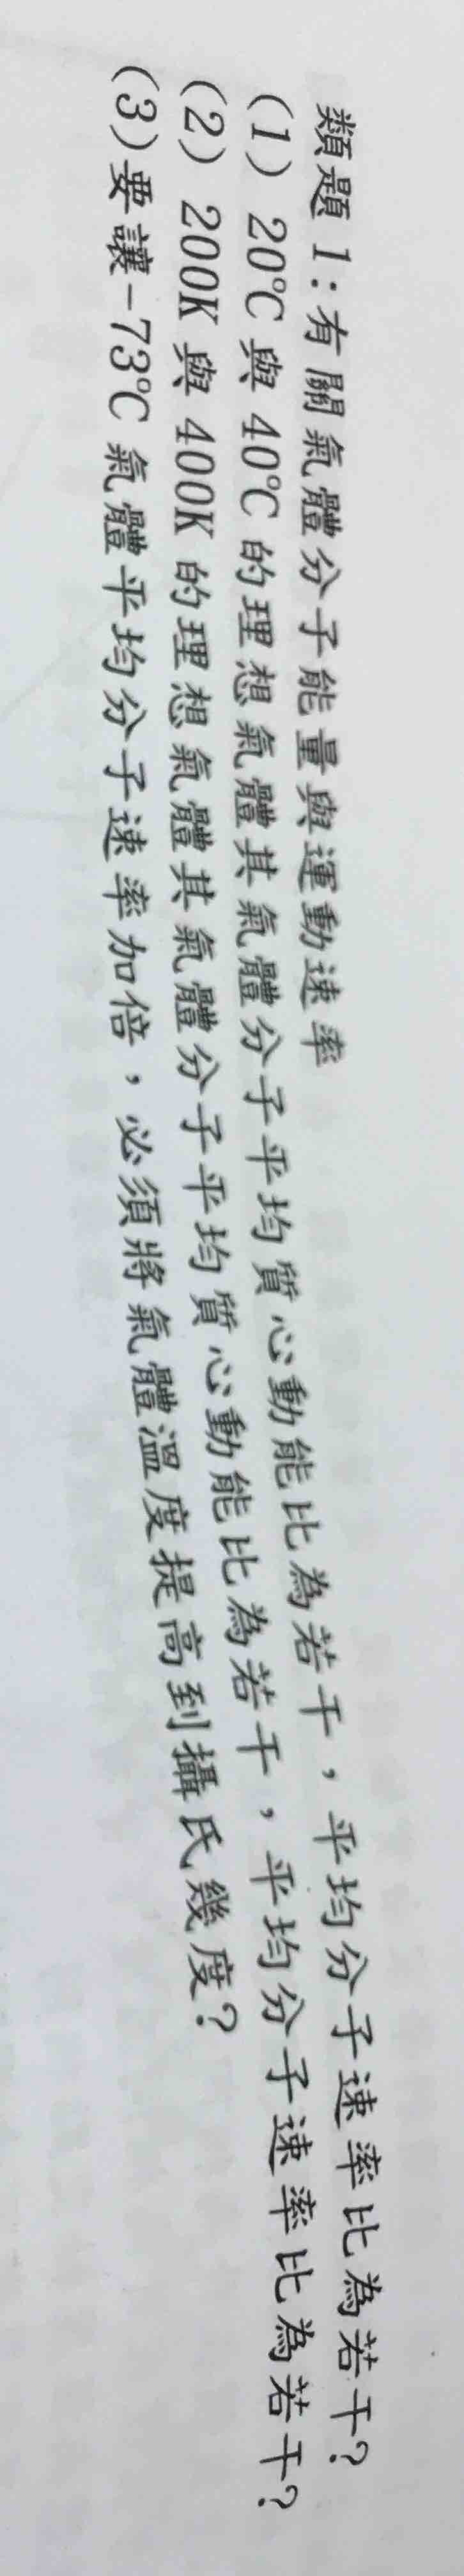 類題 1:有關氣體分子能量與運動速率
(1) 20℃ 與 40℃ 的理想氣體其氣體分子平均質心動能比為若干,平均分子速率比為若干?
(2) 200K 與 400K 的理想氣體其氣體分子平均質心動能比為若干,平均分子速率比為若干?
(3)要讓-73℃ 氣體平均分子速率加倍,必須將氣體溫度提高到攝氏幾度?